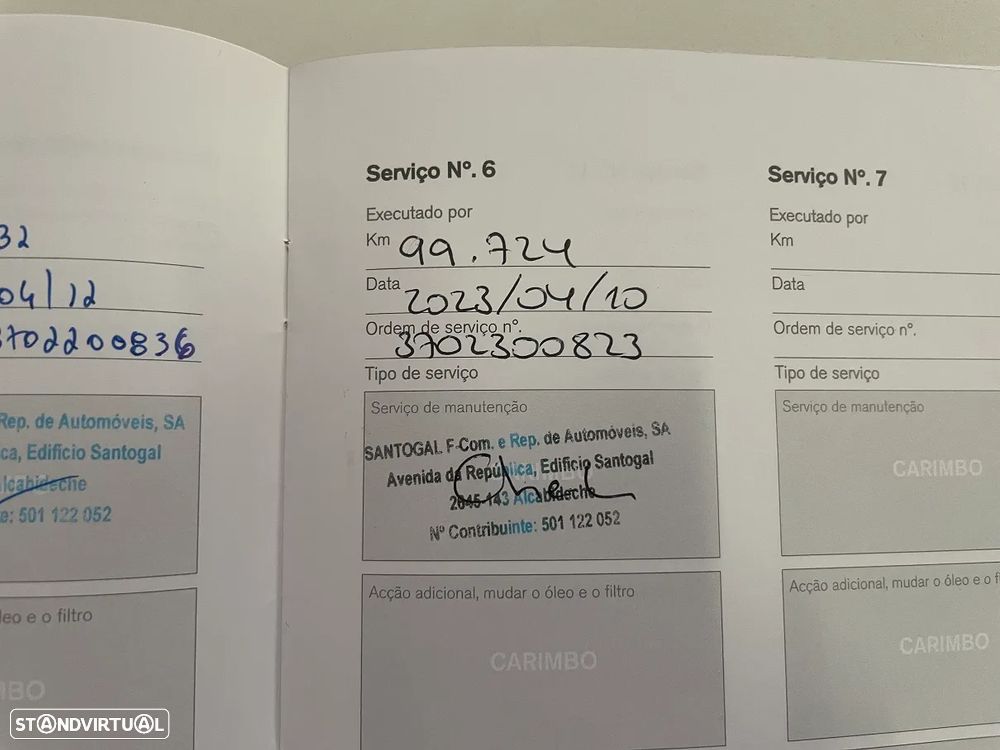 32
04/12
3702200836
Rep. de Automóveis, SA
ca, Edificio Santogal
Alcabideche
e: 501 122 052
leo e o filtro
Serviço Nº. 6
Executado por
Km 99.724
Data 2023/04/10
Ordem de serviço nº.
3702300823
Tipo de serviço
Serviço de manutenção
SANTOGAL F-Com. e Rep. de Automóveis, SA
Avenida da República, Edificio Santogal
2645-143 Alcabideche
Nº Contribuinte: 501 122 052
Acção adicional, mudar o óleo e o filtro
CARIMBO
Serviço Nº. 7
Executado por
Km
Data
Ordem de serviço nº.
Tipo de serviço
Serviço de manutenção
CARIMBO
Acção adicional, mudar o óleo e o fi
CARIMBO
STANDVIRTUAL